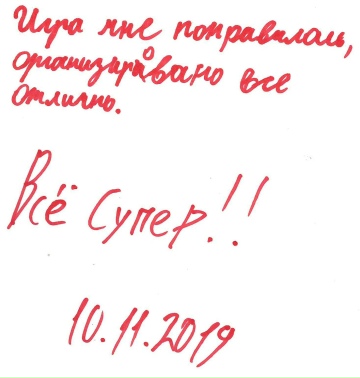 Игра мне понравилась,
организировано все
отлично.
Всё супер!!
10.11.2019